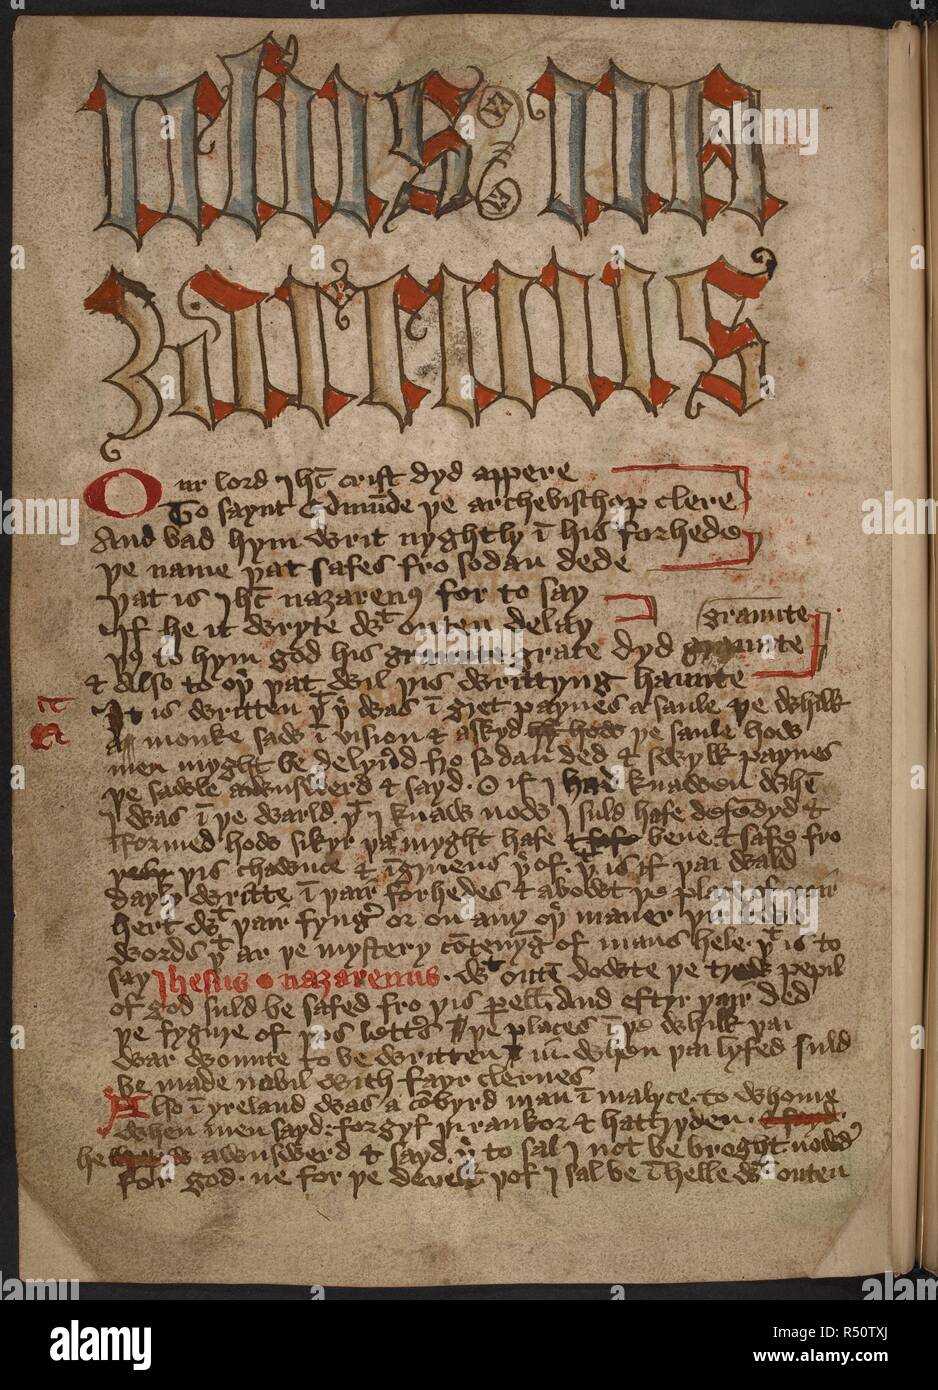 ihus na
zarenus
Our lord ihc crist dyd appere
To saynt Edmūde þe archebischop clere
And bad hym writ nyghtly ī his forhede
þe name þat safes fro sodan dede
þat is ihc nazarenꝰ for to say
If he it wryte wt outen delay
graunte
to hym god his graunte grace dyd graunte
& Also to oþr þat wil þis writtyng haunte
It is written þt þr was ī gret paynes a saule þe whilk
a monke saw ī vision & askyd how þe saule how
men myght be delyuͥd fro sodan ded & swylk paynes
þe sawle awnswerd & sayd. O if I had knawen whē
I was ī þe warld þt I knaw now I suld hafe defēdyd &
formed how sikyr þai myght hafe bene & safe fro
þis chawnce & þt is if þai wald
dayly writte ī þair forhedes & abowt þe place of þair
hert wt þair fyngͥ or on any oþr maner þir twe
words þt ar þe mystery cōtenyg of mans hele. þt is to
say Ihesus nazarenus. wt outē dowte þe pepil
of god suld be safed fro þis perell. And eftyr þair ded
þe fygure of þos letters þe places ī þe whilk þai
war wounte to be written ī. when þai lyfed suld
be made nobil with fayr clernes
Also ī yreland was a cōbyrd man ī malyce. to whome
when men sayd: forgyf þi rankor & hattryden.
he awnswerd & sayd. þr to sal I not be broght nowdͥ
for god. ne for þe devel. þof I sal be ī helle wt outen
alamy
Image ID: R50TXJ
www.alamy.com